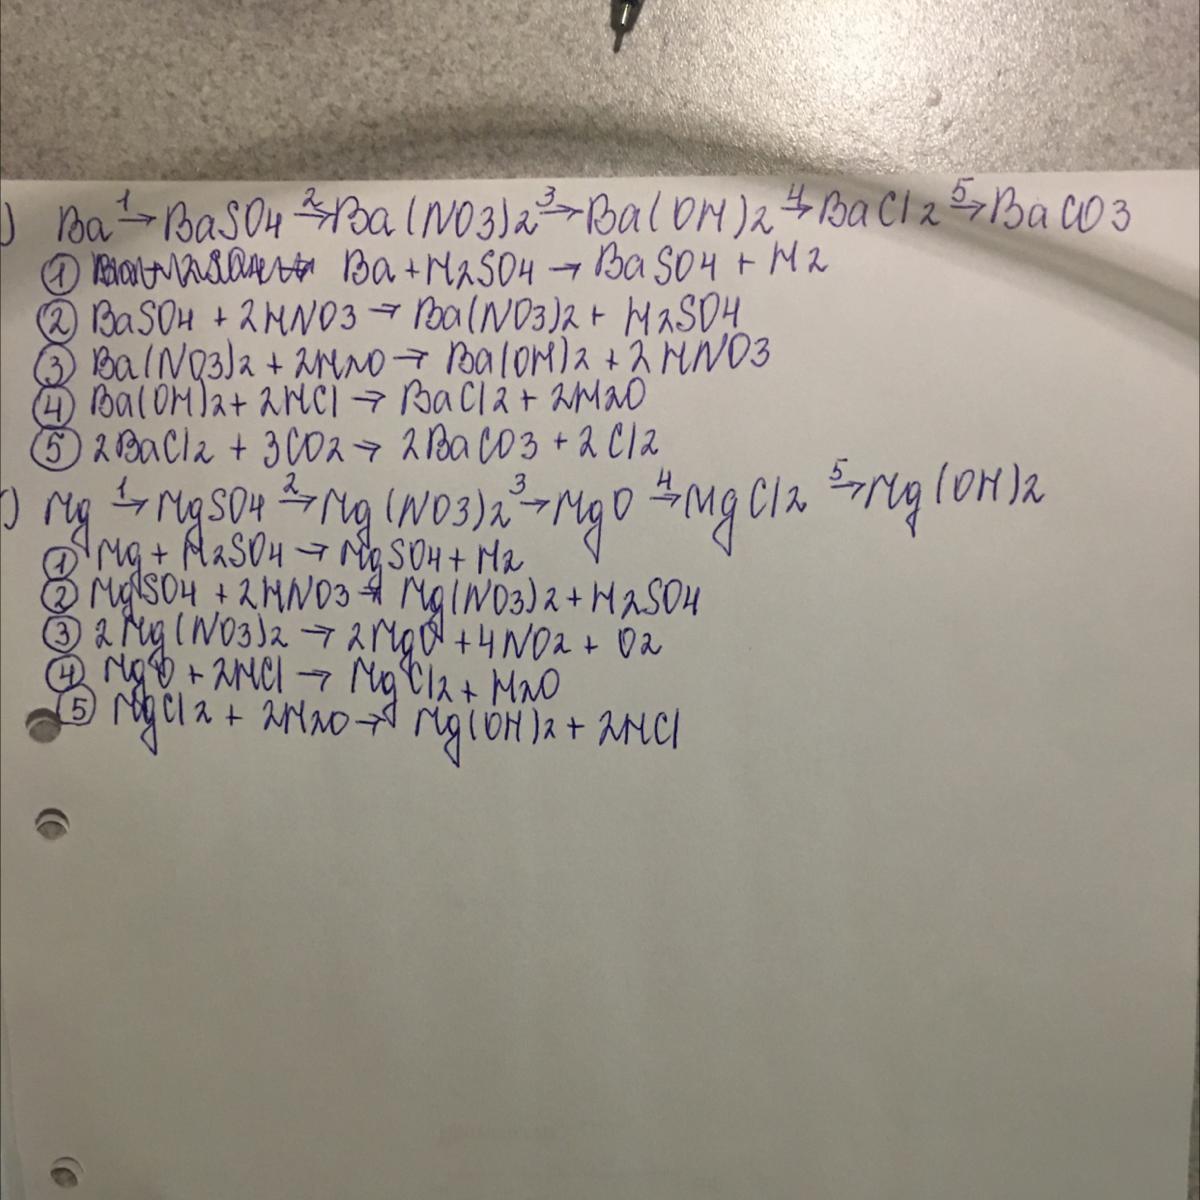 ) Ba 1→ BaSO4 2→ Ba(NO3)2 3→ Ba(OH)2 4→ BaCl2 5→ BaCO3
① Ba + H2SO4 → BaSO4 + H2
② BaSO4 + 2HNO3 → Ba(NO3)2 + H2SO4
③ Ba(NO3)2 + 2H2O → Ba(OH)2 + 2HNO3
④ Ba(OH)2 + 2HCl → BaCl2 + 2H2O
⑤ 2BaCl2 + 3CO2 → 2BaCO3 + 2Cl2
) Mg 1→ MgSO4 2→ Mg(NO3)2 3→ MgO 4→ MgCl2 5→ Mg(OH)2
① Mg + H2SO4 → MgSO4 + H2
② MgSO4 + 2HNO3 → Mg(NO3)2 + H2SO4
③ 2Mg(NO3)2 → 2MgO + 4NO2 + O2
④ MgO + 2HCl → MgCl2 + H2O
⑤ MgCl2 + 2H2O → Mg(OH)2 + 2HCl